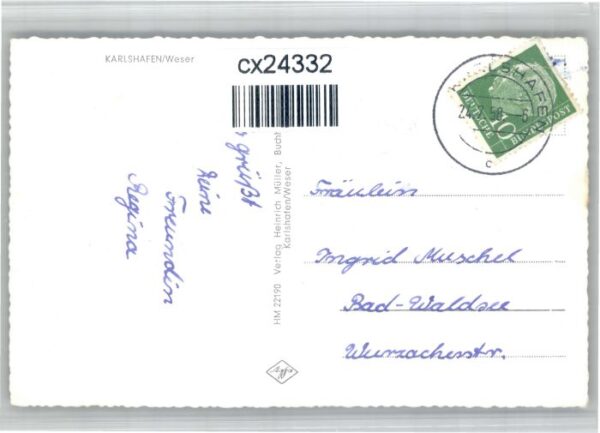 KARLSHAFEN/Weser
cx24332
grüßt
Deine
Freundin
Regina
HM 22190 Verlag Heinrich Müller, Buchh
Karlshafen/Weser
Fräulein
Ingrid Muschel
Bad-Waldsee
Wurzacherstr.
SHAFE
58
c
10
DEUTSCHE BUNDESPOST